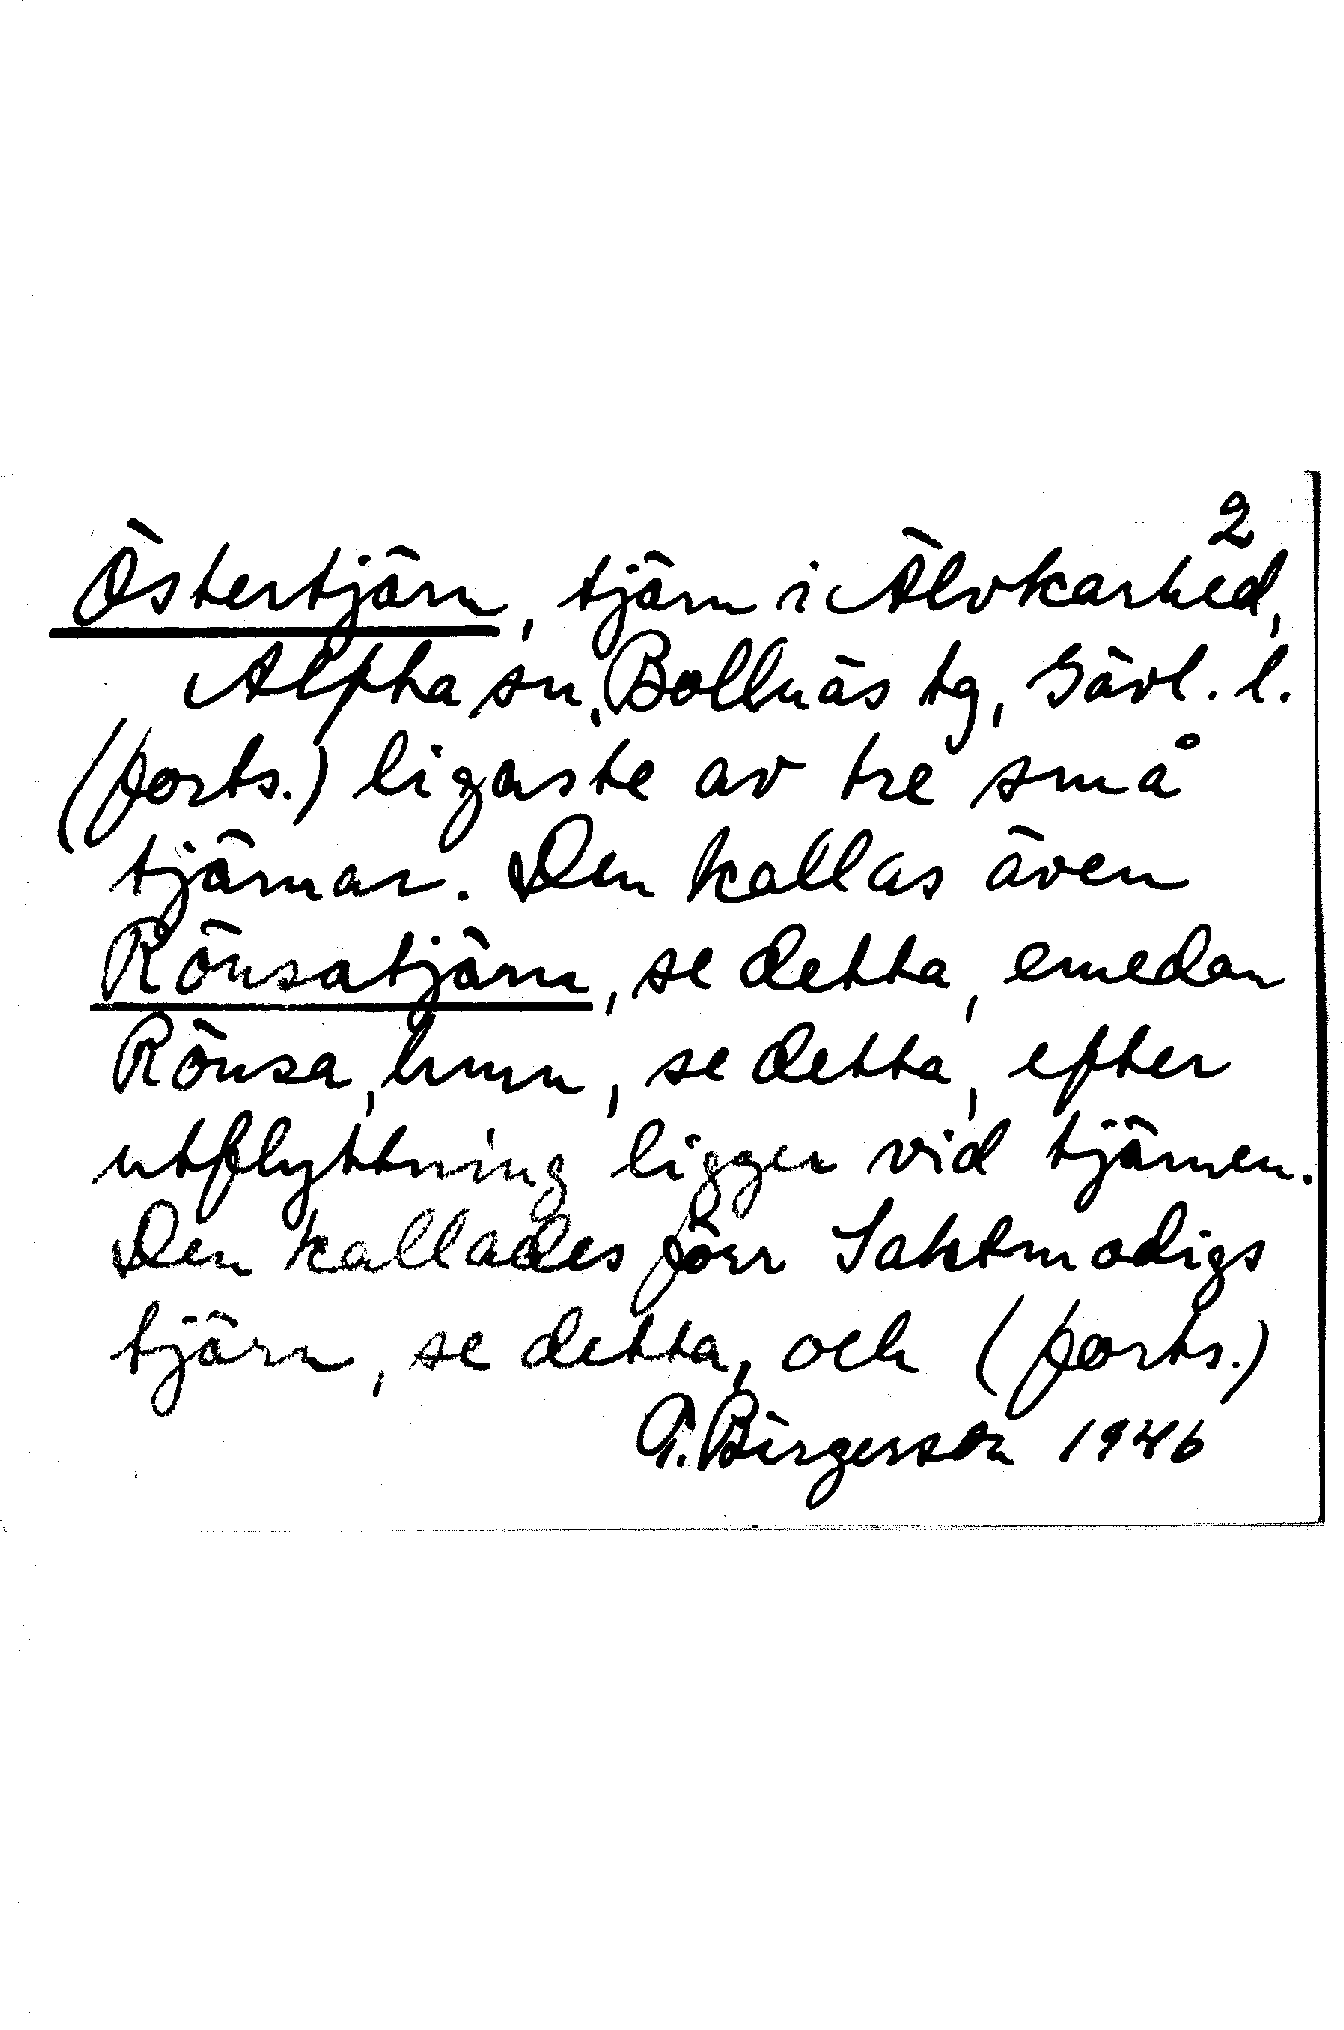 2
Östertjärn, tjärn i Älvkarhed,
Alpha sn, Bollnäs tg, Gävl. l.
(forts.) ligaste av tre små
tjärnar. Den kallas även
Rönsatjärn, se detta, emedan
Rönsa, hmn, se detta, efter
utflyttning ligger vid tjärnen.
Den kallades förr Saktmodigs
tjärn, se detta, och (forts.)
P. Birgerson 1946